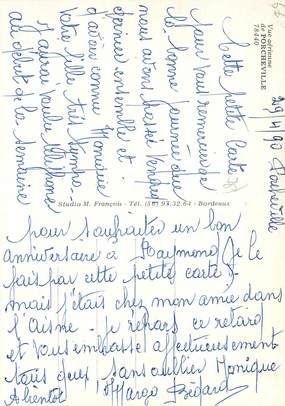 Vue aérienne
de PORCHEVILLE
78440
29/4/90 Porcheville
Cette petite Carte
pour vous remercier de
la bonne journée que
nous avons passé Vendredi
dernier ensemble et
d'avoir connu Monique
Votre fille très sympa,
J'aurai voulu téléphoner
au début de la semaine
Studio M. François - Tél. (56) 93.32.64 - Bordeaux
pour souhaiter un bon
anniversaire à Raymond (Je le
fais par cette petite carte)
mais j'étais chez mon amie dans
l'Aisne - Je répare ce retard
et vous embrasse affectueusement
tous deux sans oublier Monique
A bientôt Margo Bégard